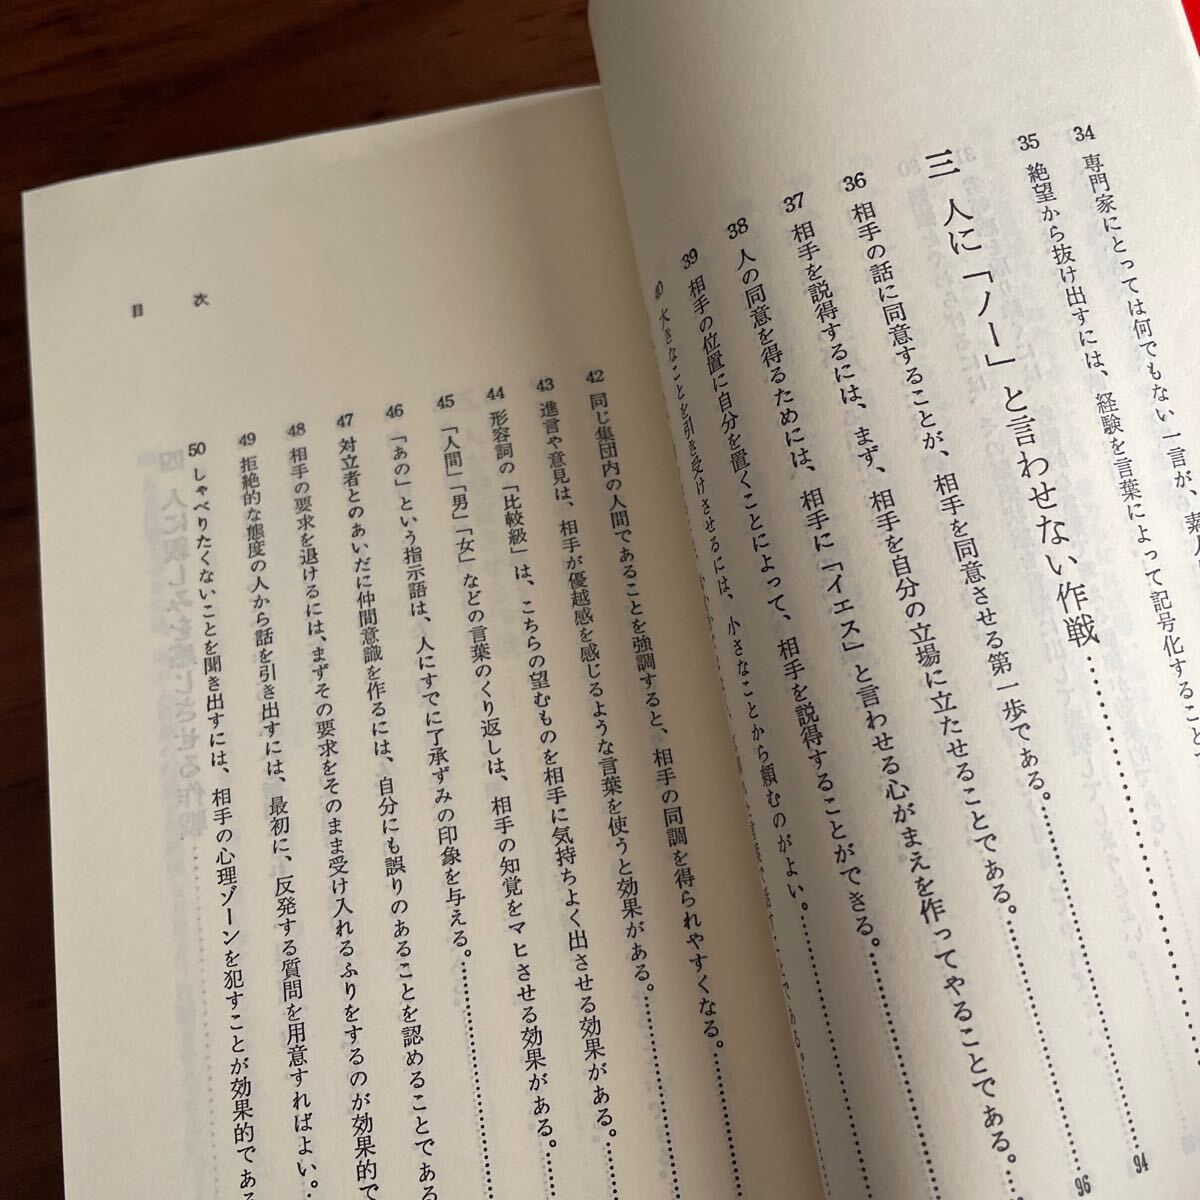 34 専門家にとっては何でもない一言が、素人
35 絶望から抜け出すには、経験を言葉によって記号化すること
94
三 人に「ノー」と言わせない作戦
96
36 相手の話に同意することが、相手を同意させる第一歩である。
37 相手を説得するには、まず、相手を自分の立場に立たせることである。
38 人の同意を得るためには、相手に「イエス」と言わせる心がまえを作ってやることである。
39 相手の位置に自分を置くことによって、相手を説得することができる。
40 大きなことを引き受けさせるには、小さなことから頼むのがよい。
42 同じ集団内の人間であることを強調すると、相手の同調を得られやすくなる。
43 進言や意見は、相手が優越感を感じるような言葉を使うと効果がある。
44 形容詞の「比較級」は、こちらの望むものを相手に気持ちよく出させる効果がある。
45 「人間」「男」「女」などの言葉のくり返しは、相手の知覚をマヒさせる効果がある。
46 「あの」という指示語は、人にすでに了承ずみの印象を与える。
47 対立者とのあいだに仲間意識を作るには、自分にも誤りのあることを認めることである
48 相手の要求を退けるには、まずその要求をそのまま受け入れるふりをするのが効果的で
49 拒絶的な態度の人から話を引き出すには、最初に、反発する質問を用意すればよい。
50 しゃべりたくないことを聞き出すには、相手の心理ゾーンを犯すことが効果的である
目 次